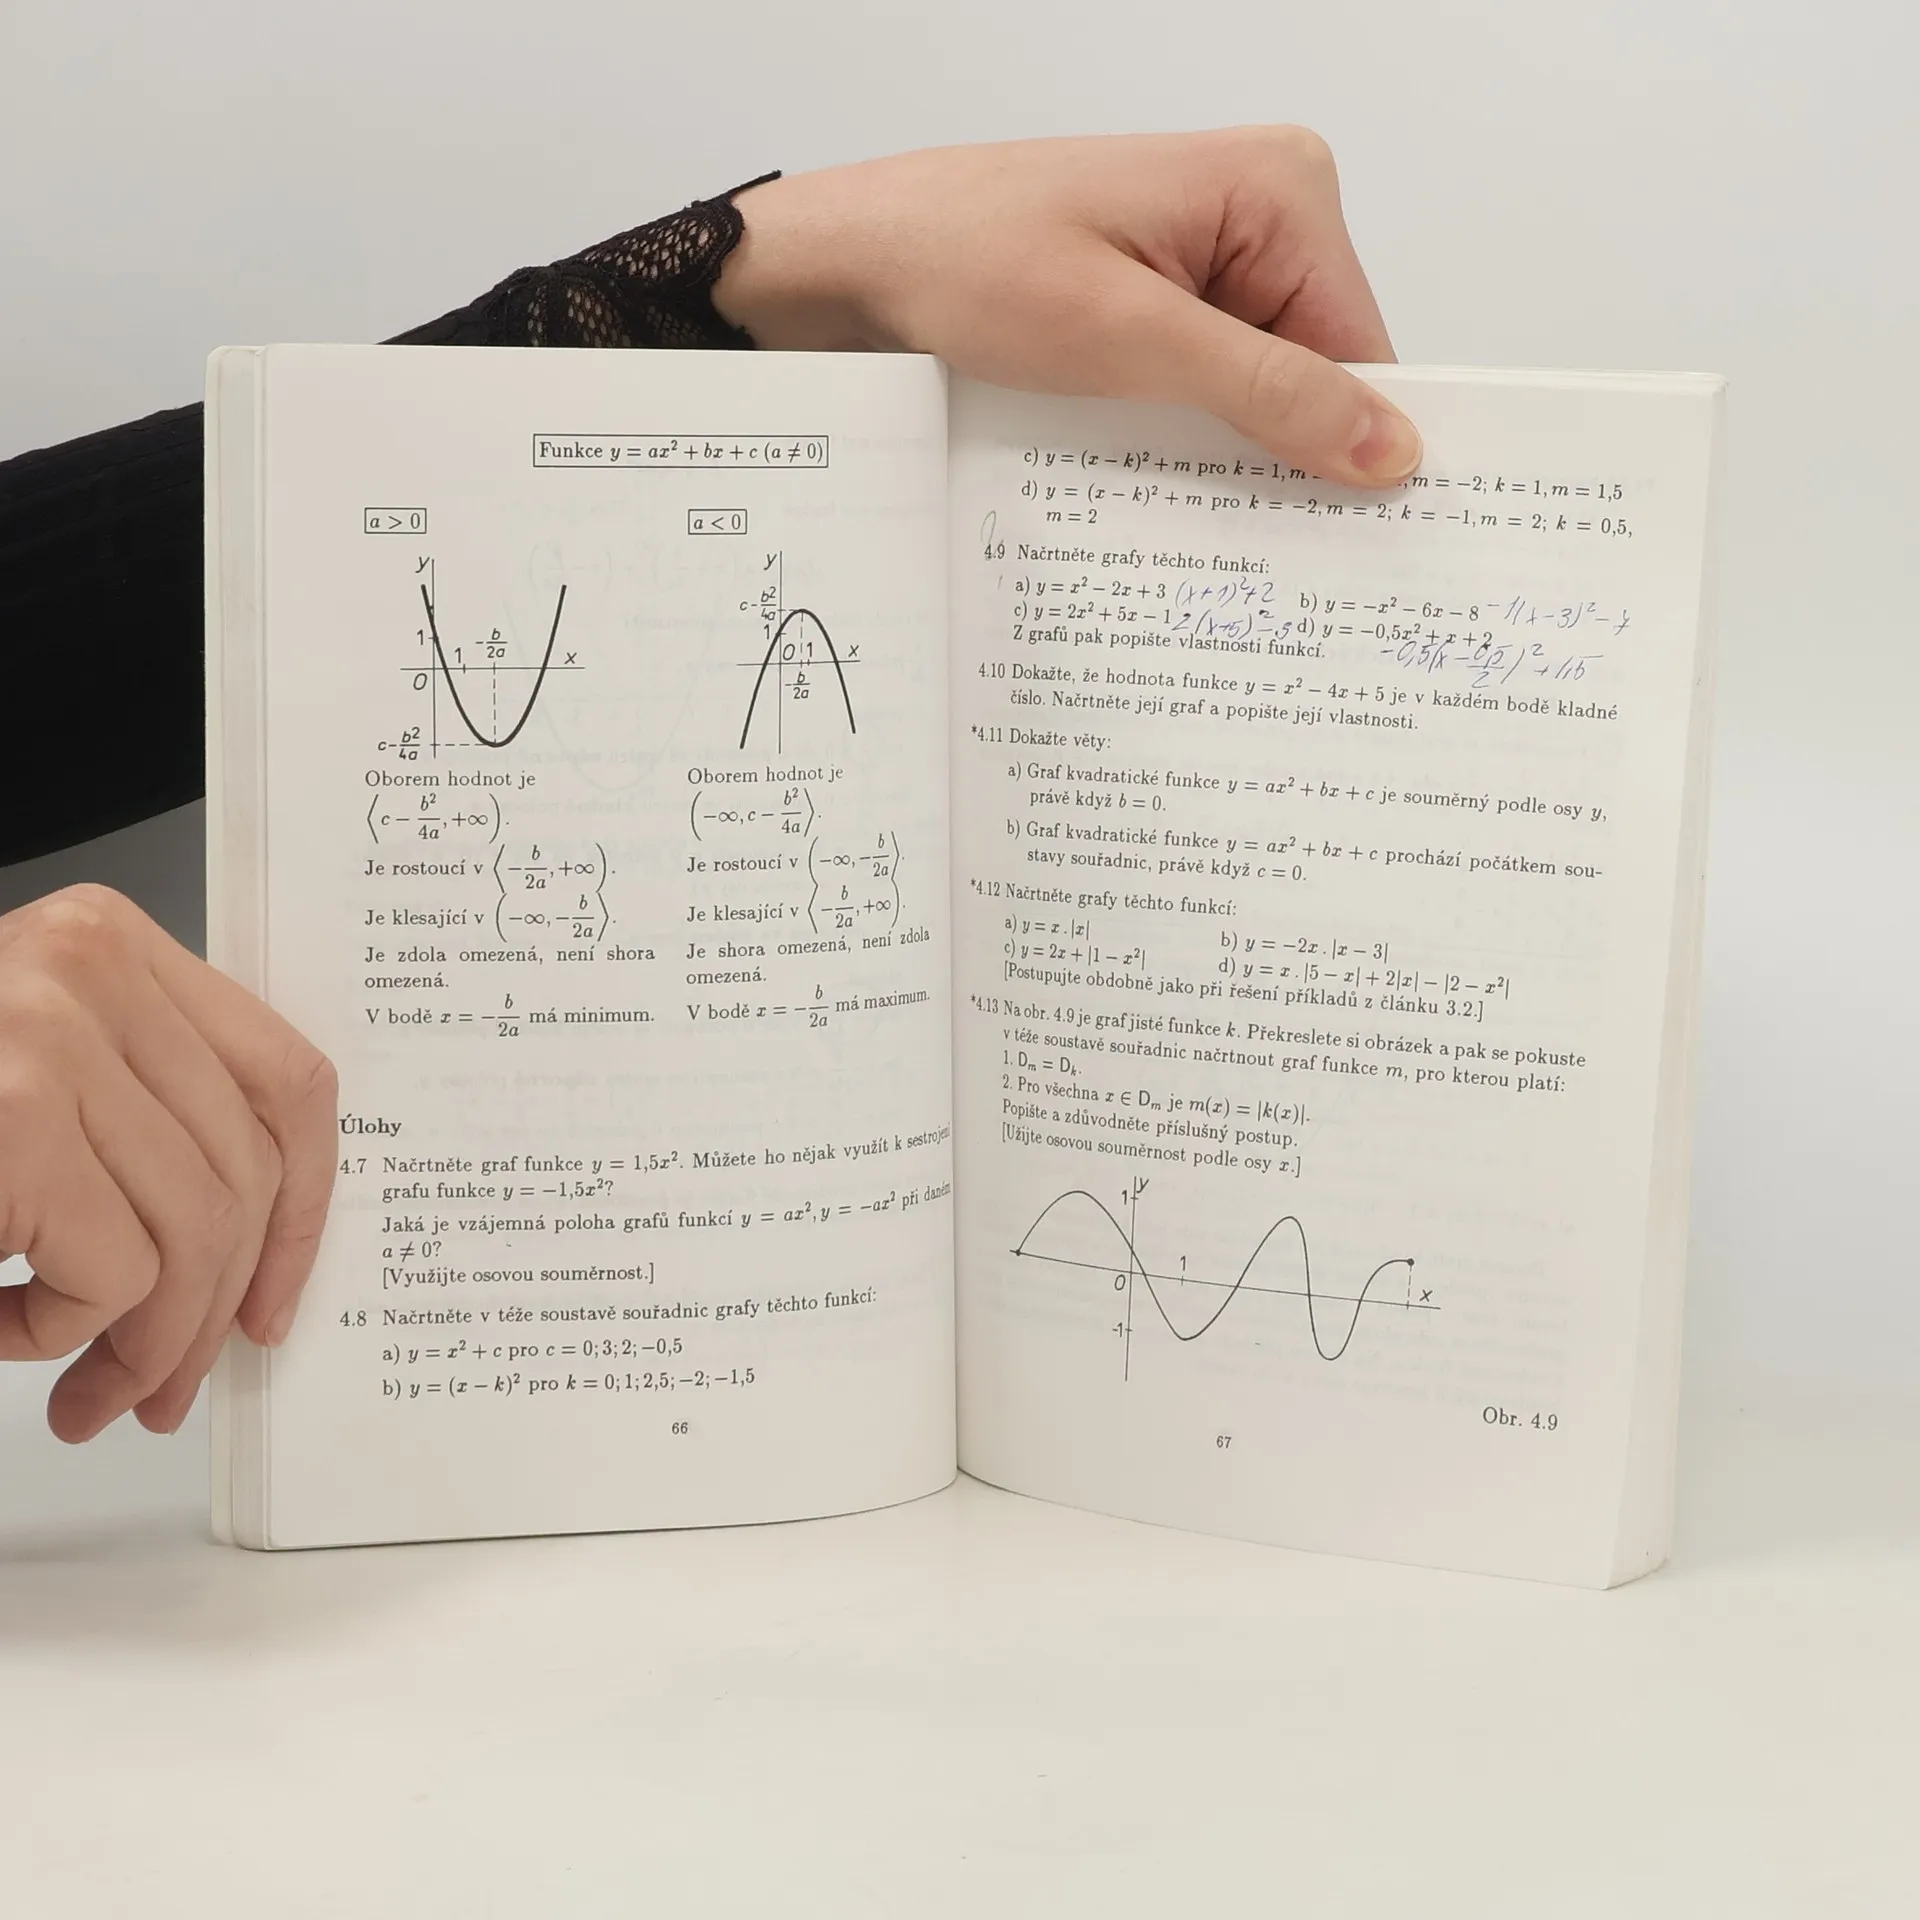 Funkce y = ax² + bx + c (a ≠ 0)
a > 0
y
1
1
-b/2a
x
0
c-b²/4a
Oborem hodnot je
⟨c − b²/4a, +∞).
Je rostoucí v ⟨−b/2a, +∞).
Je klesající v (−∞, −b/2a⟩.
Je zdola omezená, není shora
omezená.
V bodě x = −b/2a má minimum.
a < 0
y
c-b²/4a
1
0 1
x
-b/2a
Oborem hodnot je
(−∞, c − b²/4a⟩.
Je rostoucí v (−∞, −b/2a⟩.
Je klesající v ⟨−b/2a, +∞).
Je shora omezená, není zdola
omezená.
V bodě x = −b/2a má maximum.
Úlohy
4.7 Načrtněte graf funkce y = 1,5x². Můžete ho nějak využít k sestrojení
grafu funkce y = −1,5x²?
Jaká je vzájemná poloha grafů funkcí y = ax², y = −ax² při daném
a ≠ 0?
[Využijte osovou souměrnost.]
4.8 Načrtněte v téže soustavě souřadnic grafy těchto funkcí:
a) y = x² + c pro c = 0; 3; 2; −0,5
b) y = (x − k)² pro k = 0; 1; 2,5; −2; −1,5
66
c) y = (x − k)² + m pro k = 1, m , m = −2; k = 1, m = 1,5
d) y = (x − k)² + m pro k = −2, m = 2; k = −1, m = 2; k = 0,5,
m = 2
4.9 Načrtněte grafy těchto funkcí:
a) y = x² − 2x + 3 (x+1)²+2 b) y = −x² − 6x − 8 -1(x-3)²-
c) y = 2x² + 5x − 1 2(x+5)²-3 d) y = −0,5x² + x + 2
Z grafů pak popište vlastnosti funkcí. -0,5(x-0,5/2)²+1,5
4.10 Dokažte, že hodnota funkce y = x² − 4x + 5 je v každém bodě kladné
číslo. Načrtněte její graf a popište její vlastnosti.
*4.11 Dokažte věty:
a) Graf kvadratické funkce y = ax² + bx + c je souměrný podle osy y,
právě když b = 0.
b) Graf kvadratické funkce y = ax² + bx + c prochází počátkem sou-
stavy souřadnic, právě když c = 0.
*4.12 Načrtněte grafy těchto funkcí:
a) y = x . |x| b) y = −2x . |x − 3|
c) y = 2x + |1 − x²| d) y = x . |5 − x| + 2|x| − |2 − x²|
[Postupujte obdobně jako při řešení příkladů z článku 3.2.]
*4.13 Na obr. 4.9 je graf jisté funkce k. Překreslete si obrázek a pak se pokuste
v téže soustavě souřadnic načrtnout graf funkce m, pro kterou platí:
1. Dₘ = Dₖ.
2. Pro všechna x ∈ Dₘ je m(x) = |k(x)|.
Popište a zdůvodněte příslušný postup.
[Užijte osovou souměrnost podle osy x.]
1 y
1
0
x
-1
Obr. 4.9
67